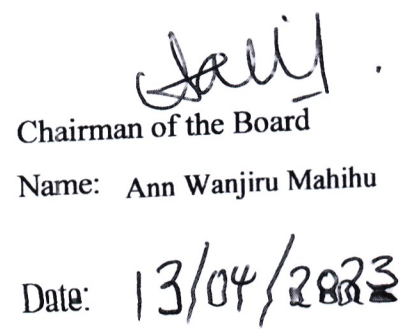 Chairman of the Board
Name: Ann Wanjiru Mahihu
Date: 13/04/2023